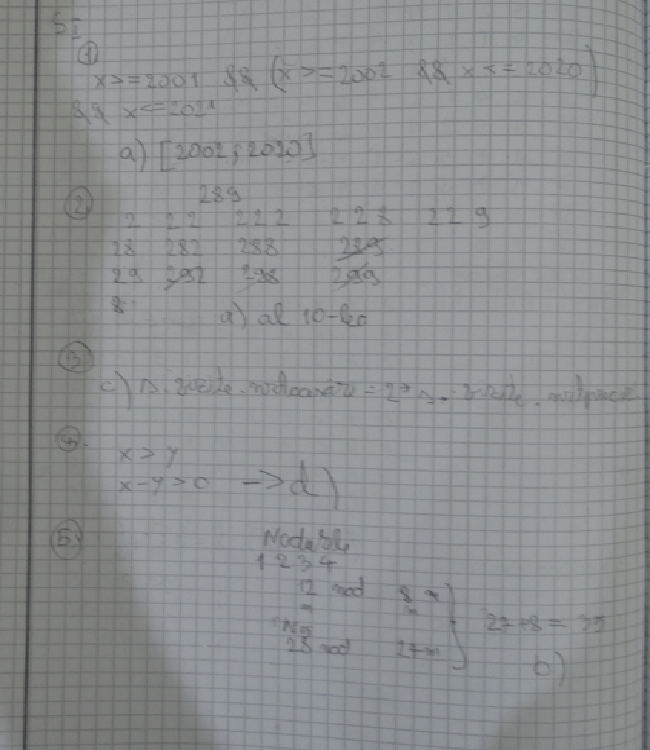 SI
①
x>=2001 && (x>=2002 && x<=2020)
&& x<=2021
a) [2002; 2020]
②
289
2 22 222 228 229
28 282 288 289
29 292 298 299
8
a) al 10-lea
③
c)
④
x > y
x-y > 0 -> d)
⑤
1 2 3 4
12 nod 8 m
28 nod 27 m
27+8 = 35
b)